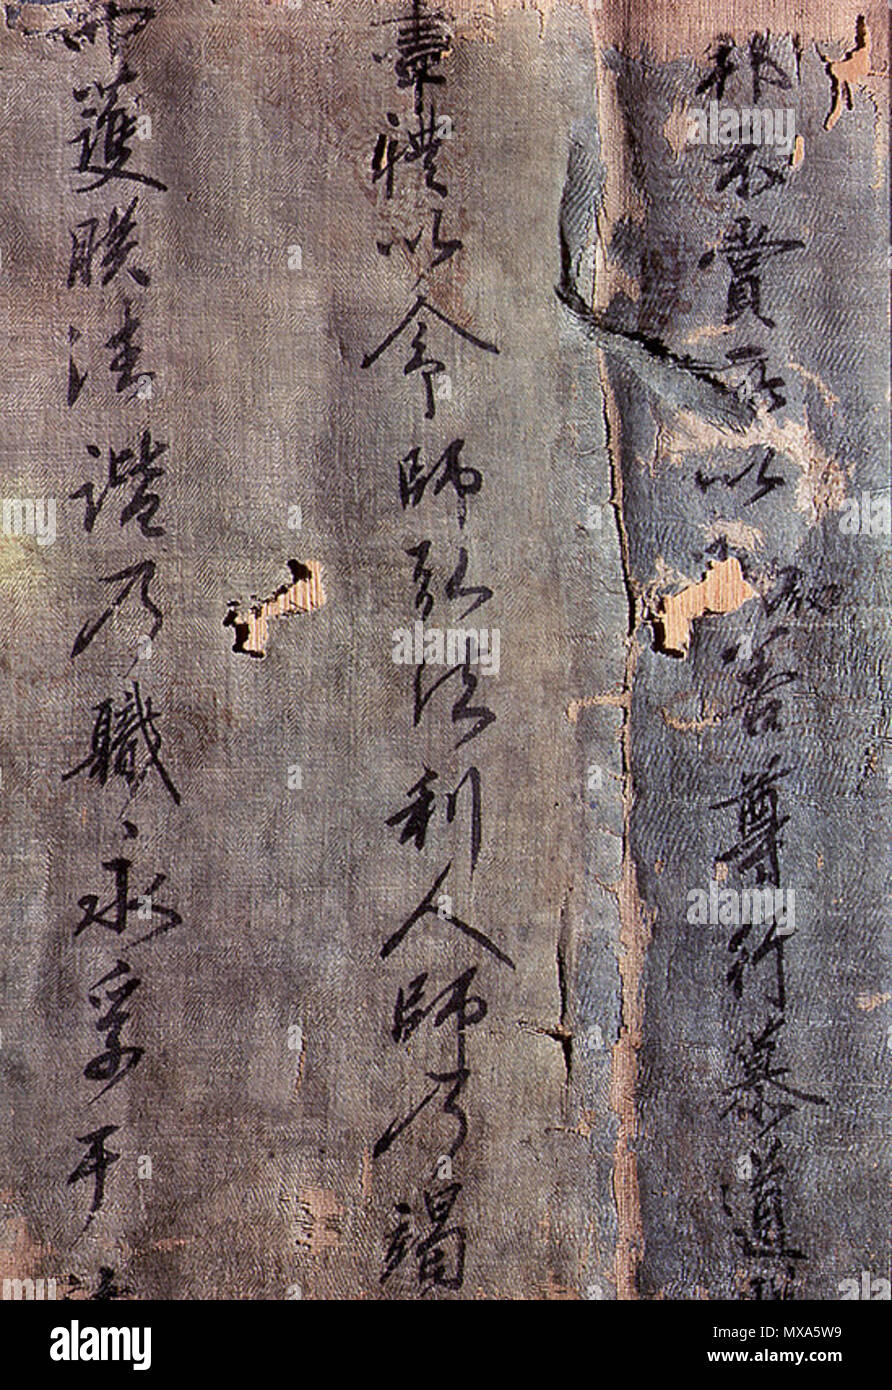 衣賞 以 若尊行慕道
禮以令師弘法利人師乃竭
護朕法諧乃職永孚于
alamy
Image ID: MXA5W9
www.alamy.com